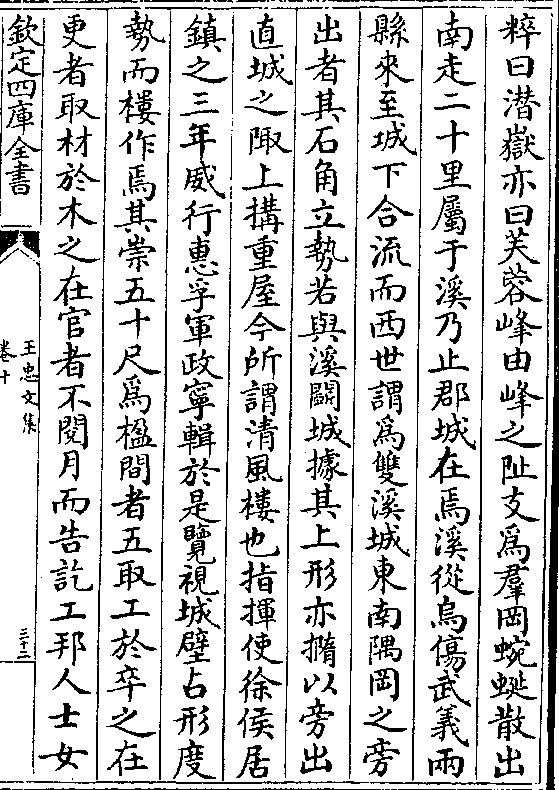 粹曰潛嶽亦曰芙蓉峰由峰之阯支為羣岡蜿蜒散出
南走二十里屬于溪乃止郡城在焉溪從烏傷武義兩
縣來至城下合流而西世謂為雙溪城東南隅岡之旁
出者其石角立勢若與溪鬭城據其上形亦撱以旁出
直城之陬上搆重屋今所謂清風樓也指揮使徐侯居
鎮之三年威行惠孚軍政寧輯於是覽視城壁占形度
勢而樓作焉其崇五十尺為楹間者五取工於卒之在
更者取材於木之在官者不閱月而告訖工邦人士女
欽定四庫全書
王忠文集
卷十
三十二